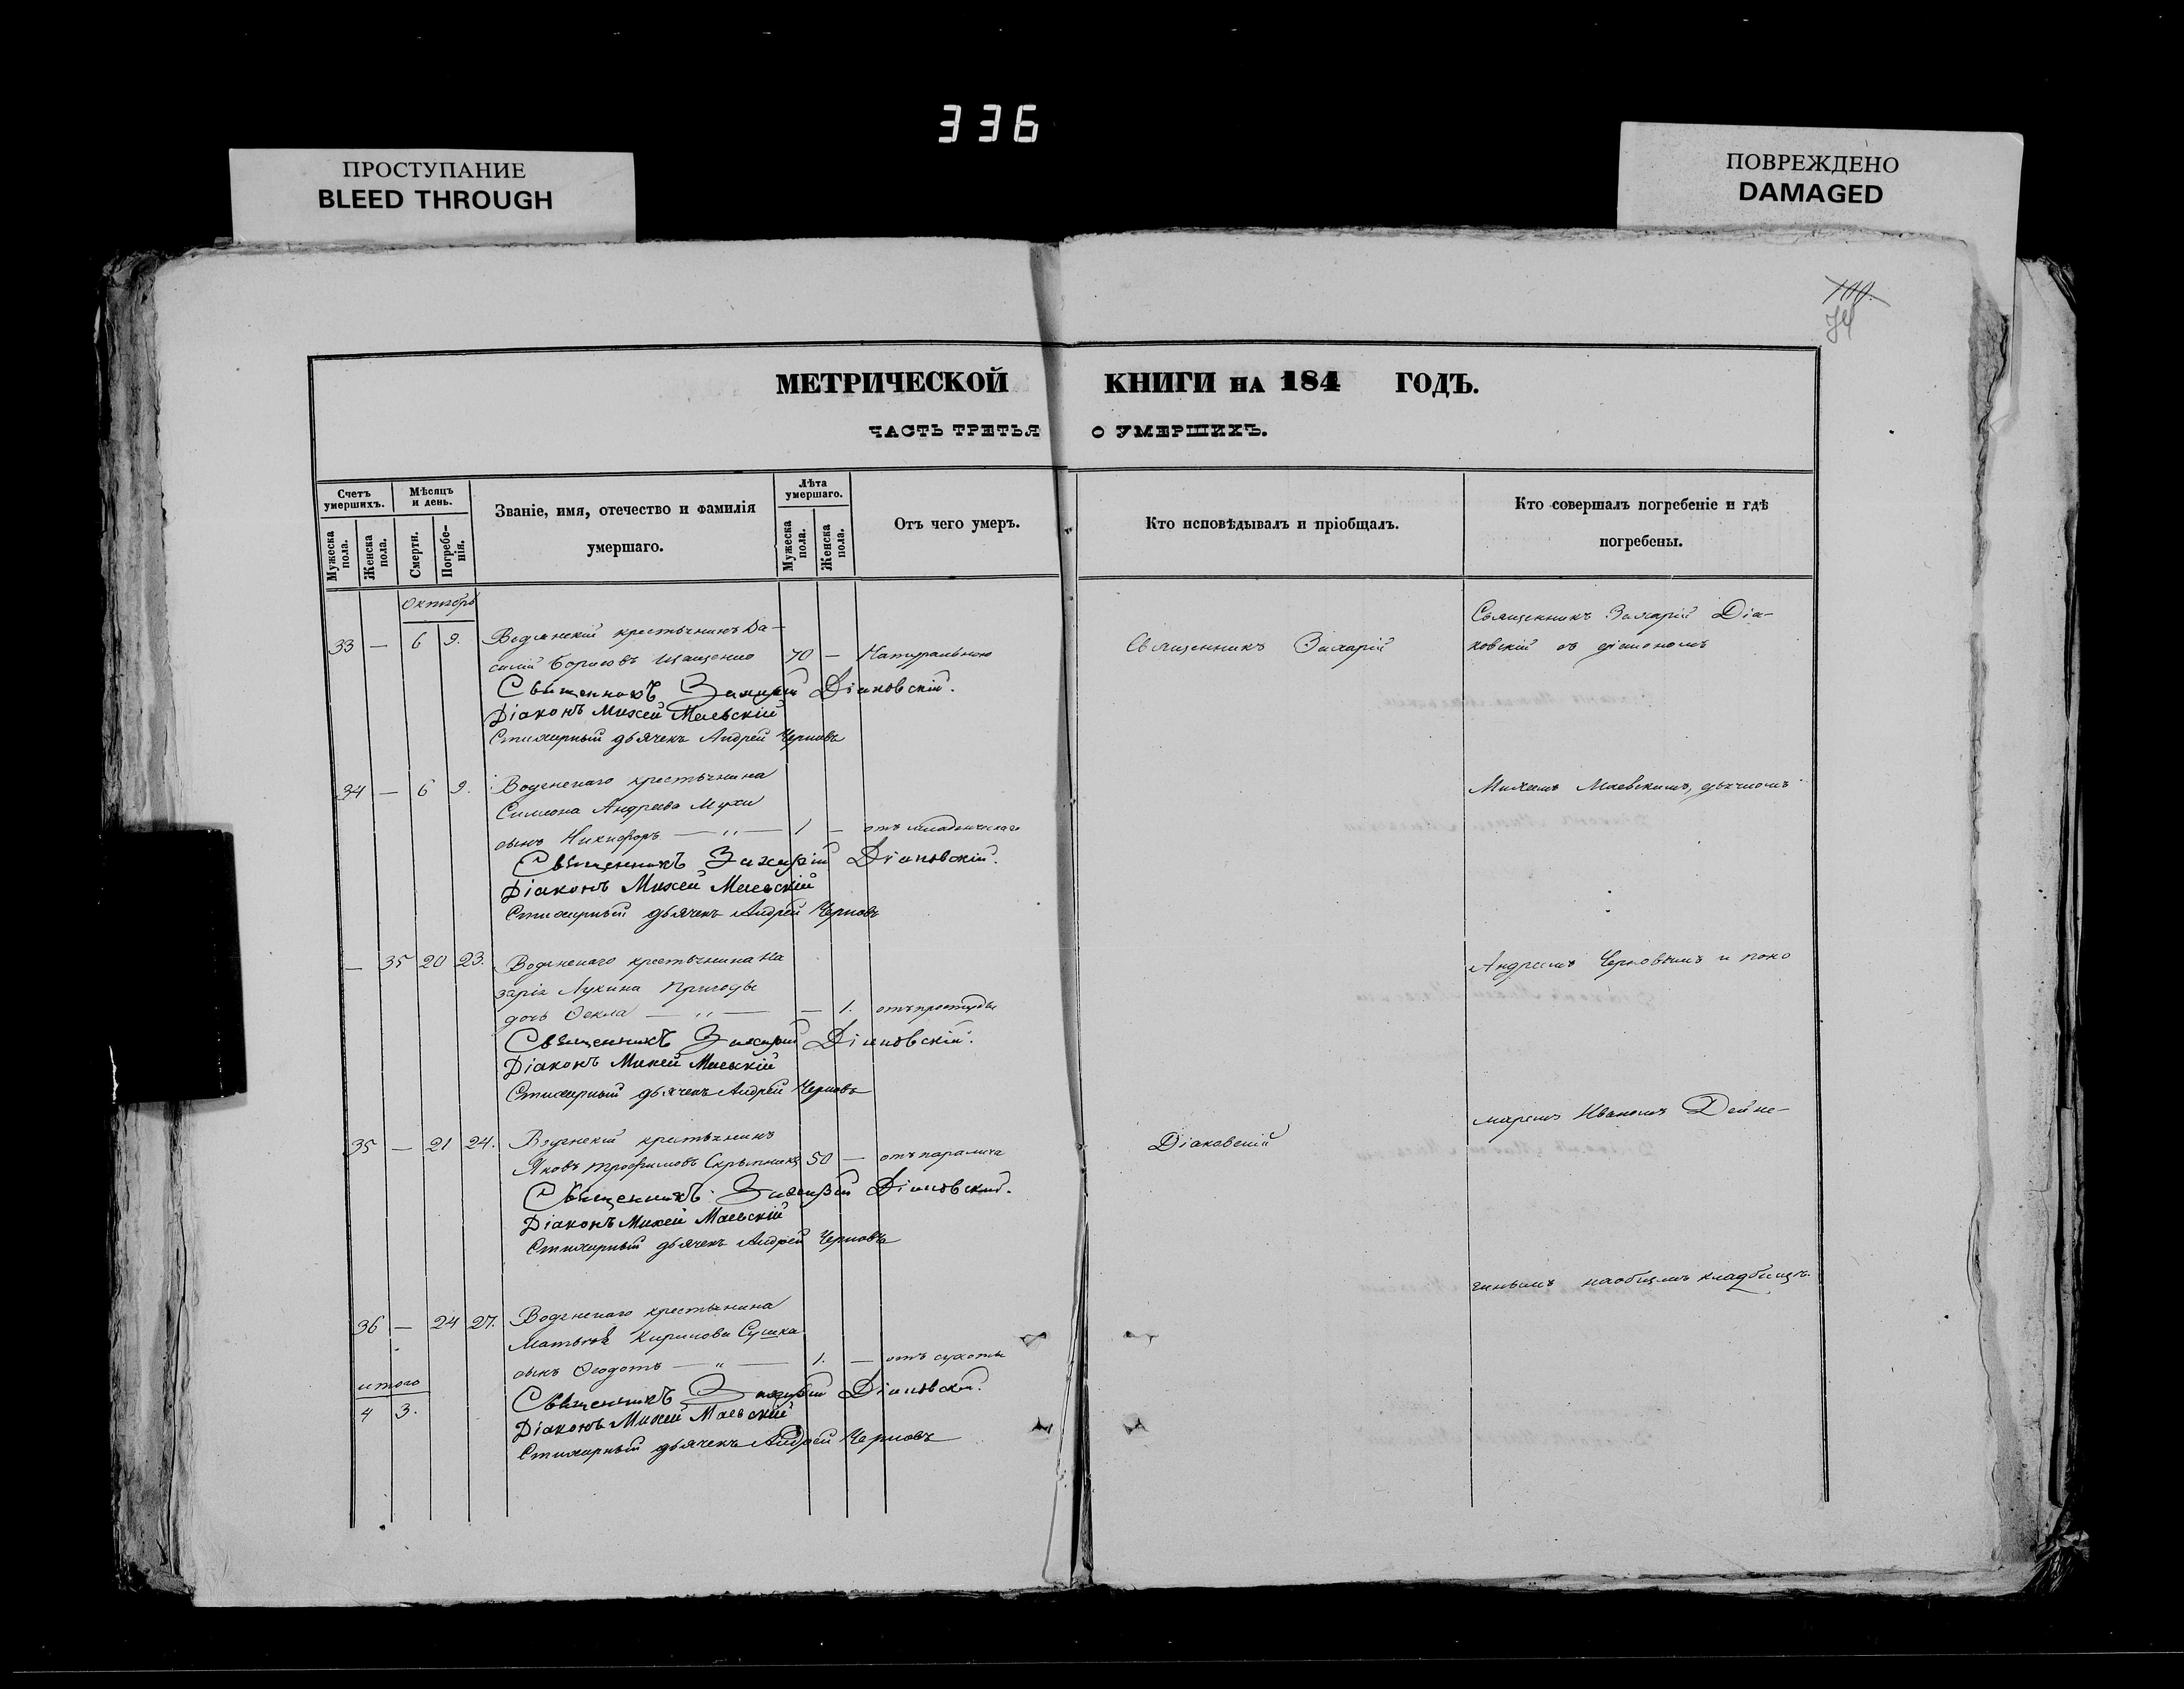 336
ПРОСТУПАНИЕ
BLEED THROUGH
ПОВРЕЖДЕНО
DAMAGED
74
МЕТРИЧЕСКОЙ КНИГИ НА 184 ГОДЪ.
ЧАСТЬ ТРЕТЬЯ О УМЕРШИХЪ.
Счетъ умершихъ.
Мужеска пола.
Женска пола.
Мѣсяцъ и день.
Смерти.
Погребе-нія.
Званіе, имя, отечество и фамилія
умершаго.
Лѣта умершаго.
Мужеска пола.
Женска пола.
Отъ чего умеръ.
Кто исповѣдывалъ и пріобщалъ.
Кто совершалъ погребеніе и гдѣ
погребены.
Октябрь
33 — 6 9. крестьянинъ Ва-
силій Борисовъ Ищенко 70 — Натуральною
Священникъ Захарій
Священникъ Захарій Діа-
ковскій съ діакономъ
Священникъ Захарій Діаковскій.
Діаконъ Михей Маевскій
Стихарный дьячекъ Андрей Черновъ
34 — 6 9. крестьянина
Симеона Андреева Мухи
сынъ Никифоръ — „ — 1 — отъ младенческаго
Михеемъ Маевскимъ, дьячкомъ
Священникъ Захарій Діаковскій.
Діаконъ Михей Маевскій
Стихарный дьячекъ Андрей Черновъ
— 35 20 23. крестьянина На
зарія Лукина Пригоды
дочь Ѳекла — „ — — 1. отъ простуды
Андреемъ Черновымъ и поно
Священникъ Захарій Діаковскій.
Діаконъ Михей Маевскій
Стихарный дьячекъ Андрей Черновъ
маремъ Иваномъ Дейне-
35 — 21 24. крестьянинъ
Яковъ Трофимовъ Скрыпникъ 50 — отъ паралича
Діаковскій
Священникъ Захарій Діаковскій.
Діаконъ Михей Маевскій
Стихарный дьячекъ Андрей Черновъ
гинымъ на общемъ кладбищѣ.
36 — 24 27. крестьянина
Матвѣя Кирилова Сушка
сынъ Ѳеодотъ — „ — 1. — отъ сухоты
итого
4 3.
Священникъ Захарій Діаковскій.
Діаконъ Михей Маевскій
Стихарный дьячекъ Андрей Черновъ